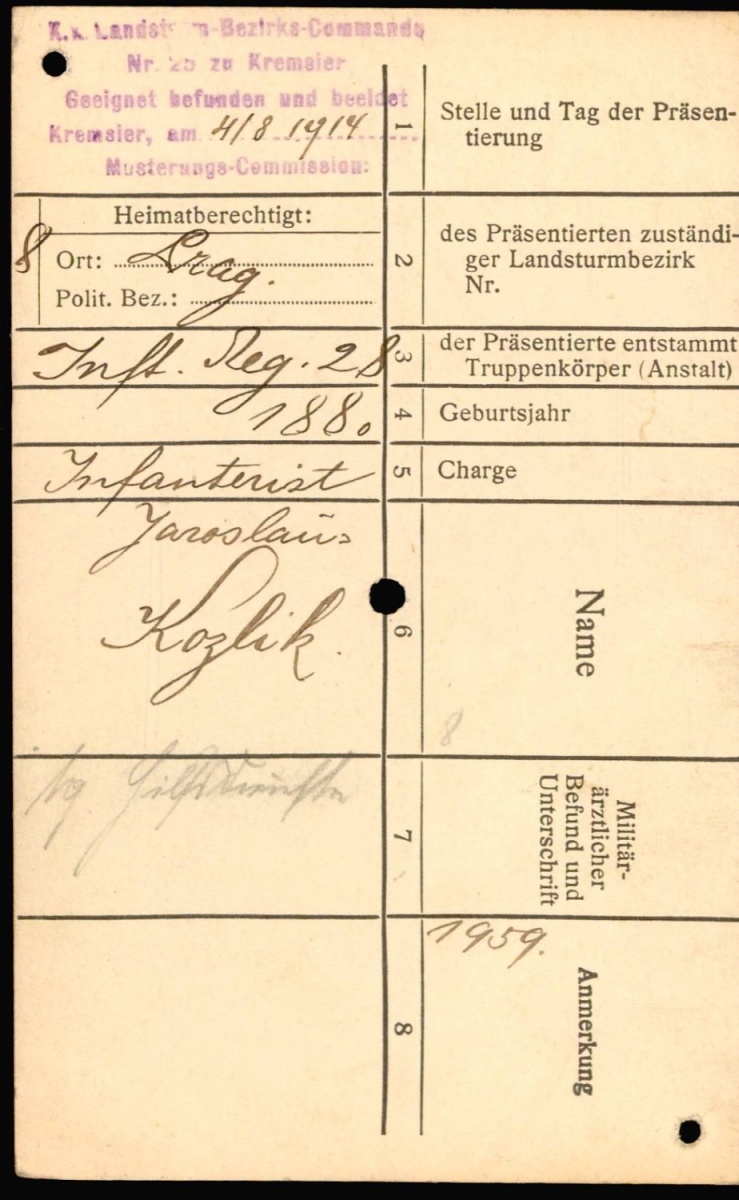 K.k. Landsturm-Bezirks-Commando
Nr. 25 zu Kremsier
Geeignet befunden und beeidet
Kremsier, am 4/8 1914
Musterungs-Commission:
1
Stelle und Tag der Präsen-
tierung
Heimatberechtigt:
8
Ort: Prag.
Polit. Bez.:
2
des Präsentierten zuständi-
ger Landsturmbezirk
Nr.
Inft. Reg. 28
3
der Präsentierte entstammt
Truppenkörper (Anstalt)
1880
4
Geburtsjahr
Infanterist
5
Charge
Jaroslau
Kozlik.
6
Name
8
7
Militär-
ärztlicher
Befund und
Unterschrift
1959.
8
Anmerkung